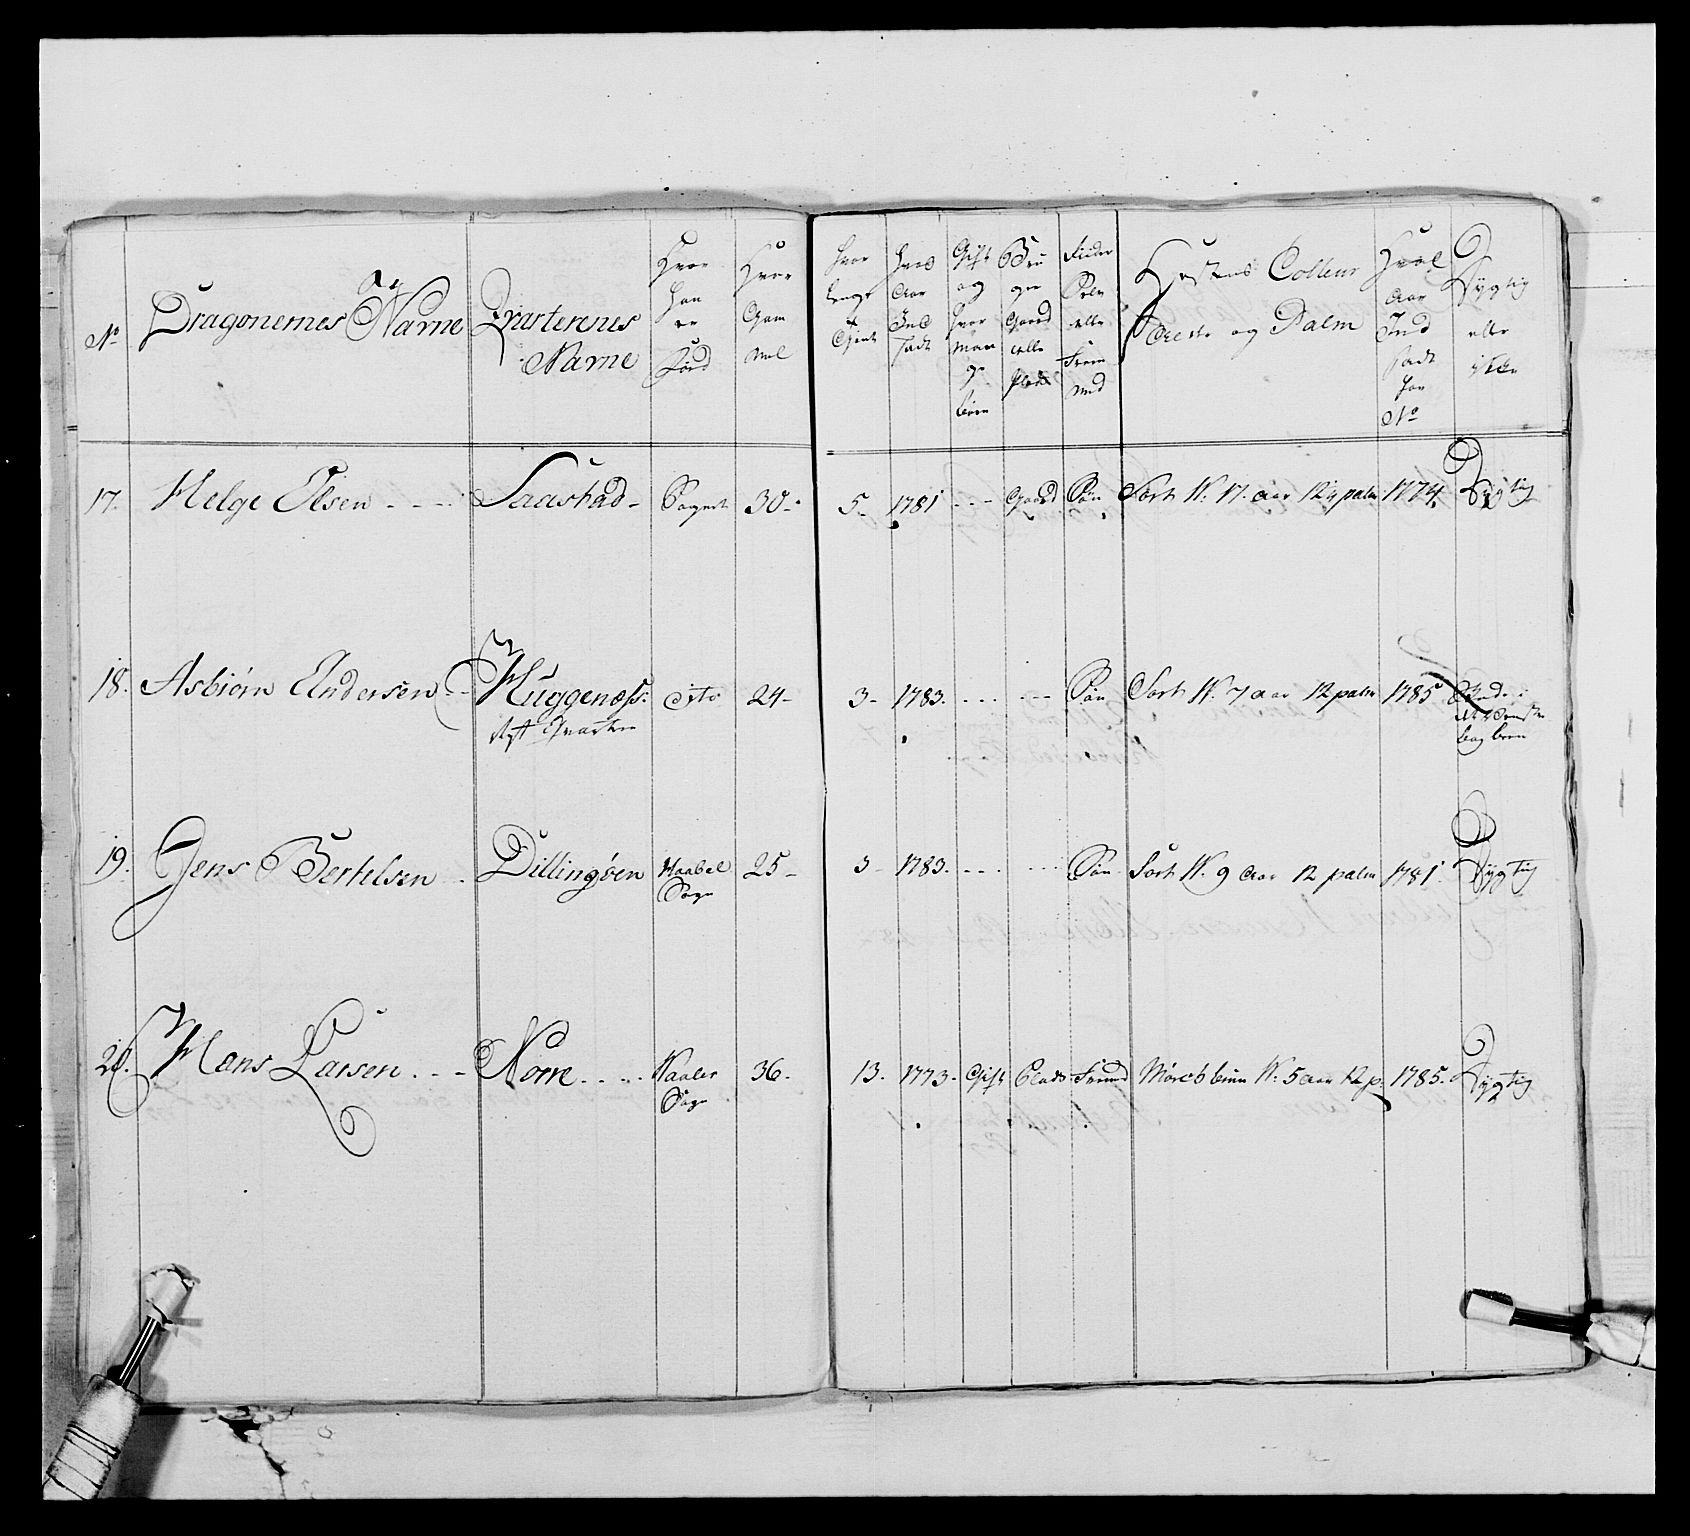 No
Dragonernes Navne
Qvarterenes Navne
Hvor han er Fød
Hvor Gam mel
hvor lenge Tient
hvad Aar Ind sadt
Gift og hvor man ge børn
Bru ger Gaard elle Plads
Finder Søn elle Frem med
Hestens Colleur Alder og Palm
Hvad Aar Ind sadt for No
Dygtig eller ikke
17. Helge Olsen Saastad Sognet 30. 5. 1781 Gaard Søn Sort W. 17. aar 12¼ palm 1774. Dygtig
18. Asbiørn Andersen Huggenæss. dito 24 3 1783. Søn Sort W. 7 aar 12 palm 1785
Nyt Qvarter
19. Jens Bertelsen Dillingøen Waabel Sogn 25 3 1783. Søn Sort W. 9 aar 12 palm 1781. Dygtig
20. Hans Larsen Norre Waaler Sogn 36. 13. 1773. Gift Plads Fremd Mørcbbrun W. 5 aar 12 p. 1785. Dygtig